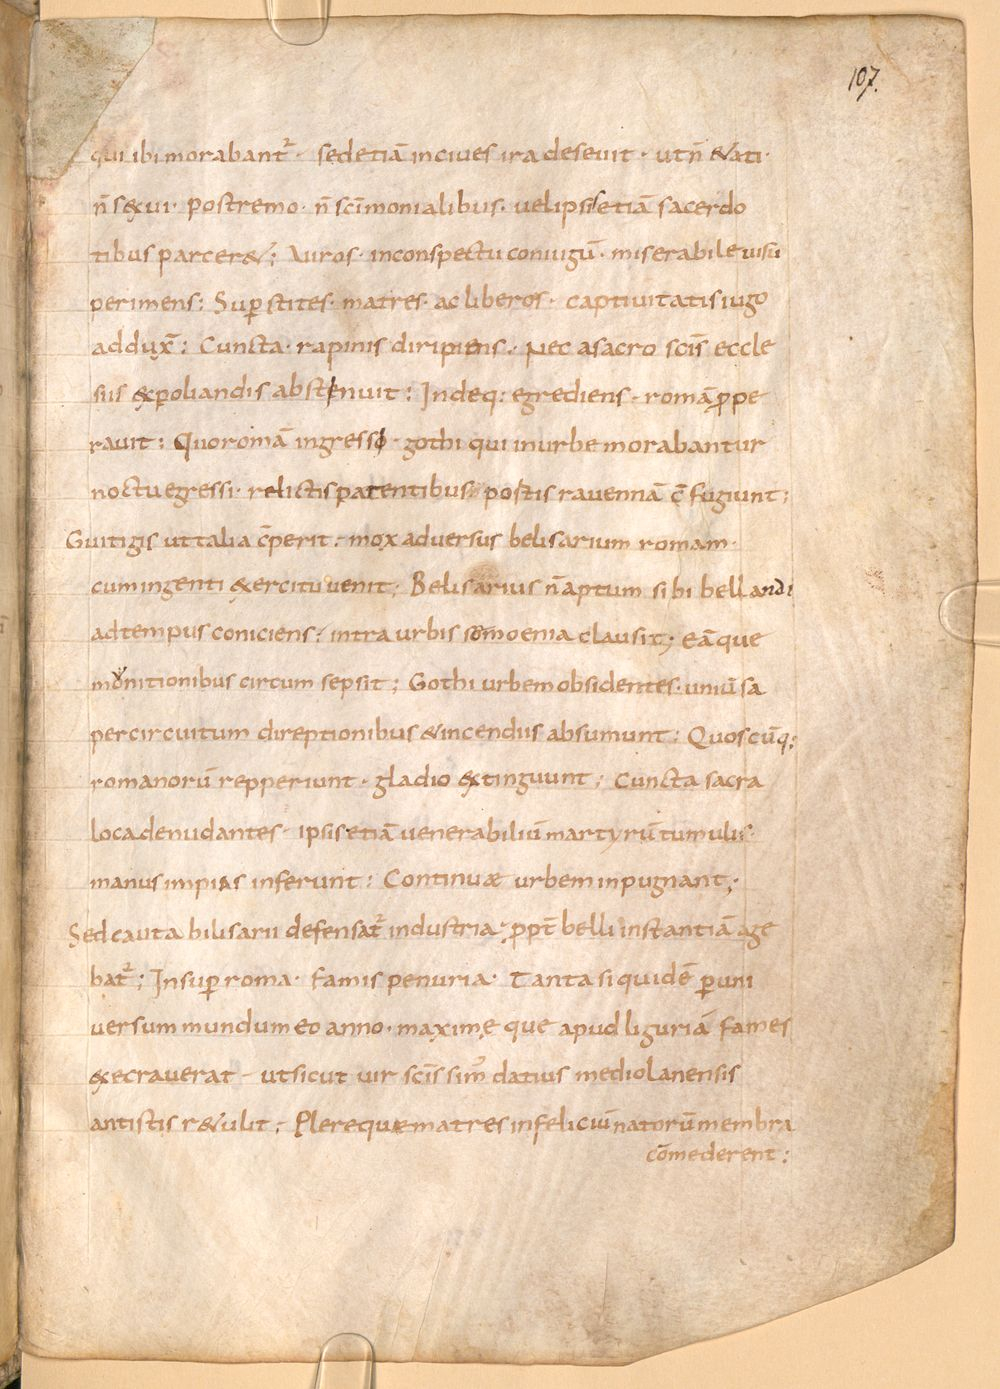 107.
qui ibi morabant᷑ · sed etiā in cives ira desevit · ut n̄ &ati ·
n̄ sexui · postremo · n̄ sc̄imonialibus · vel ipsis etiā sacerdo
tibus parcer&; Viros · in conspectu coniugū · miserabile visu
perimens: Sup̱stites · matres · ac liberos · captivitatis iugo
addux̄: Cuncta · rapinis diripiens · Nec a sacro scīs eccle
siis exp̱oliandis abstenuit: Indeq: egrediens · romā p̱pe
ravit: Quo romā ingresso · gothi qui in urbe morabantur
noctu egressi · relictis patentibus postis ravennā c̄fugiunt:
Guitigis ut talia c̄perit: mox adversus belisarium romam ·
cum ingenti exercitu venit; Belisarius n̄ aptum sibi bellandi
ad tempus coniciens: intra urbis se moenia clausit; Eāque
monitionibus circum sepsit; Gothi urbem obsidentes · uniūsa
per circuitum direptionibus & incendiis absumunt: Quoscūq;
romanorū repperiunt · gladio extinguunt; Cuncta sacra
loca denudantes · ipsis etiā venerabiliū martyrū tumulis ·
manus impias inferunt: Continuæ urbem inpugnant;
Sed cauta bilisarii defensat᷑ industria · p̱pt̄ belli instantiā age
bat᷑; Insup̱ roma · famis penuria · Tanta siquidē p̱ uni
versum mundum eo anno · maximę que apud liguriā fames
execraverat · ut sicut vir scīssim᷒ datius mediolanensis
antistis r&ulit; Plereque matres infeliciū natorū membra
cōmederent: